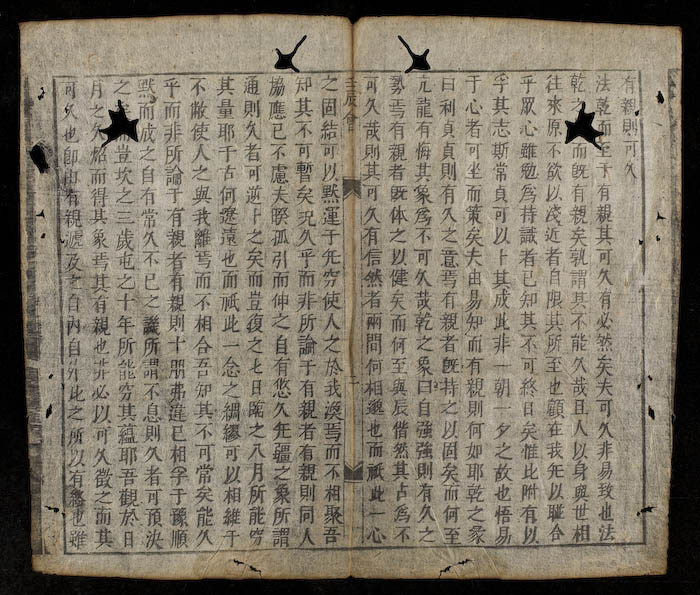 有親則可久
法乾而至于有親其可久有必然矣夫可久非易致也法
乾之而既有親矣孰謂其不能久哉且人以身與世相
往來原不欲以淺近者自限其所至也顧在我旡以聯合
乎眾心雖勉為持識者已知其不可終日矣惟比附有以
孚其志斯常貞可以卜其成此非一朝一夕之故也悟易
于心者可坐而策矣夫由易知而有親則何如耶乾之彖
曰利貞貞則有久之意焉有親者既持之以固矣而何至
亢龍有悔其象為不可久哉乾之象曰自強強則有久之
勢焉有親者既体之以健矣而何至與辰偕然其占為不
可久哉則其可久有信然者兩間何相邈也而祇此一心
壬辰會
二
之固結可以默運于旡窮使人之於我渙焉而不相聚吾
知其不可暫矣況久乎而非所論于有親者有親則同人
協應已不慮夫睽孤引而伸之自有悠久旡疆之象所謂
通則久者可逆卜之矣而豈復之七日臨之八月所能窮
其量耶千古何遼遠也而祇此一念之綢繆可以相維于
不敝使人之與我離焉而不相合吾知其不可常矣能久
乎而非所論于有親者有親則十朋弗違已相孚于豫順
默而成之自有常久不已之議所謂不息則久者可預決
之矣而豈坎之三歲屯之十年所能窮其蘊耶吾觀於日
月之久焰而得其象焉其有親也非必以可久徵之而其
可久也即由有親號及之自內自外此之所以有愁也雖